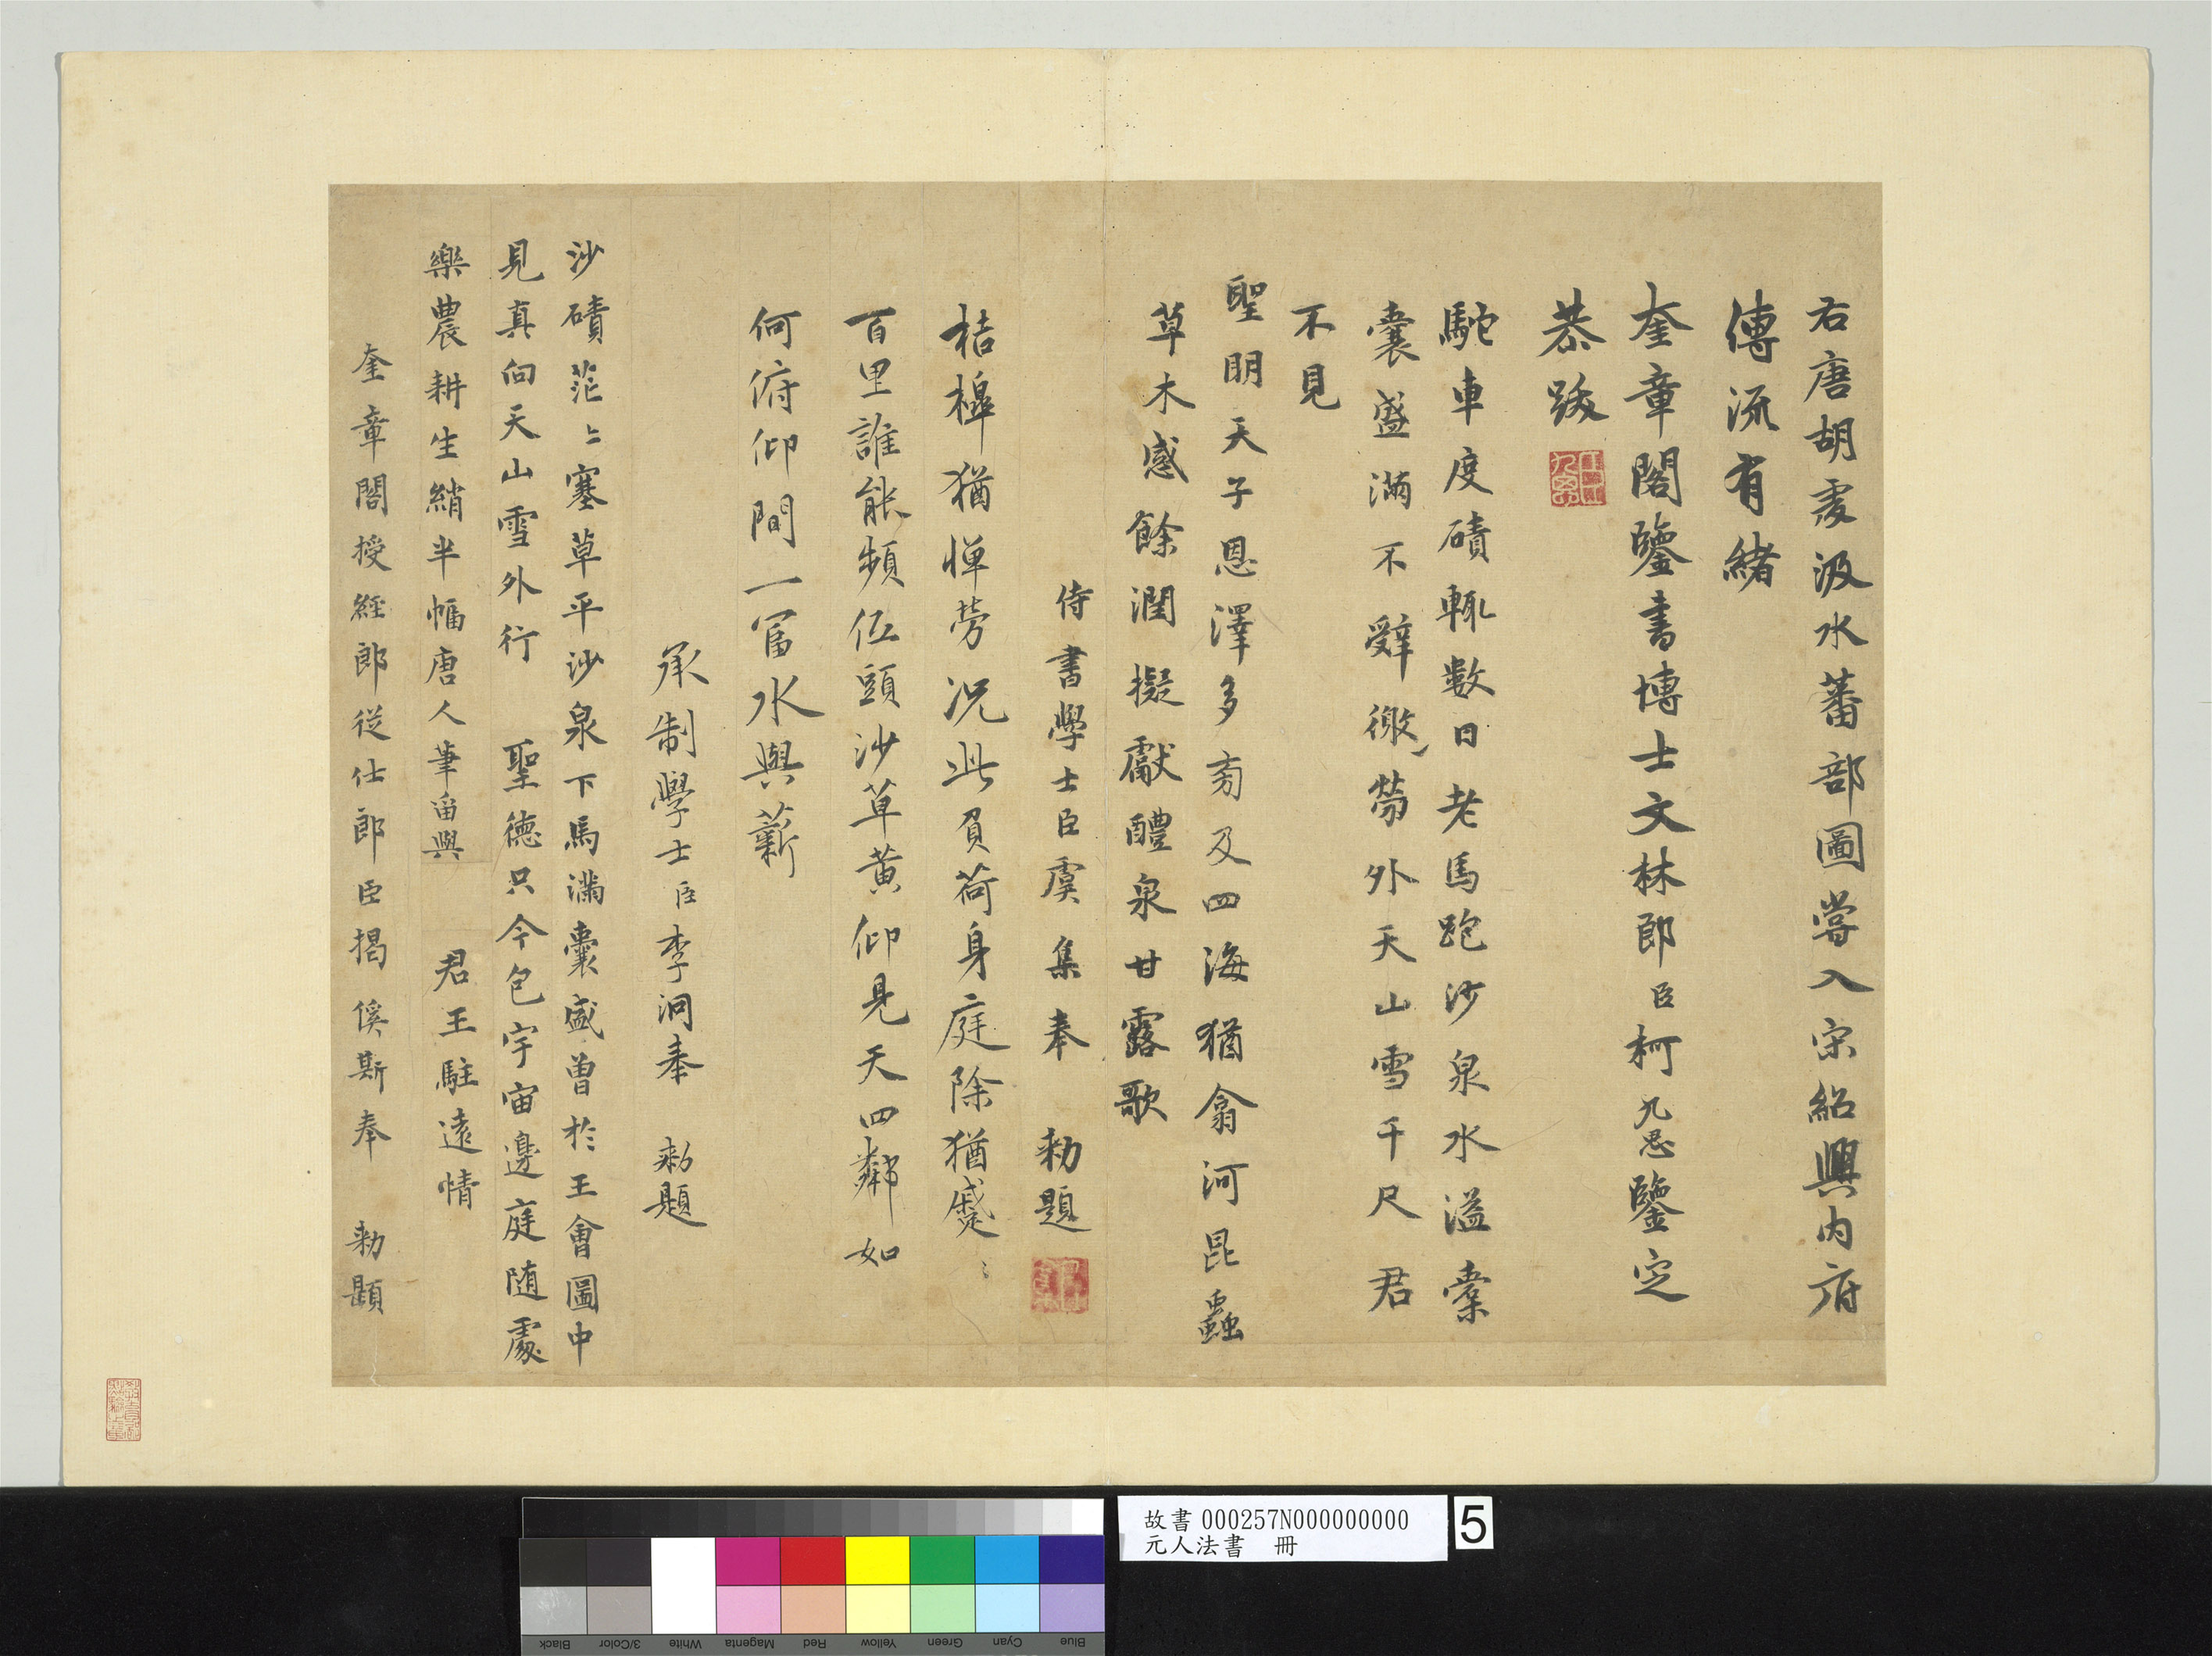 右唐胡虔汲水蕃部圖嘗入宋紹興内府
傳流有緒
奎章閣鑒書博士文林郎臣柯九思鑒定
恭跋
駝車度磧輒數日老馬跑沙泉水溢橐
囊盛滿不辤徼勞外天山雪千尺君
不見
聖明天子恩澤多旁及四海猶翕河昆蟲
草木感餘潤擬獻醴泉甘露歌
侍書學士臣虞集奉 勑題
桔槔猶憚勞況此負荷身庭除猶蹙〻
百里誰能頻低頭沙草黄仰見天四鄰如
何俯仰間一富水與薪
承制學士臣李泂奉 勑題
沙磧茫〻塞草平沙泉下馬滿囊盛曽於王會圖中
見真向天山雪外行 聖德只今包宇宙邊庭随處
樂農耕生綃半幅唐人筆畱與 君王駐遠情
奎章閣授經郎從仕郎臣揭傒斯奉 勑題
故書000257N000000000
元人法書 冊
5
Black
3/Color
White
Magenta
Red
Yellow
Green
Cyan
Blue